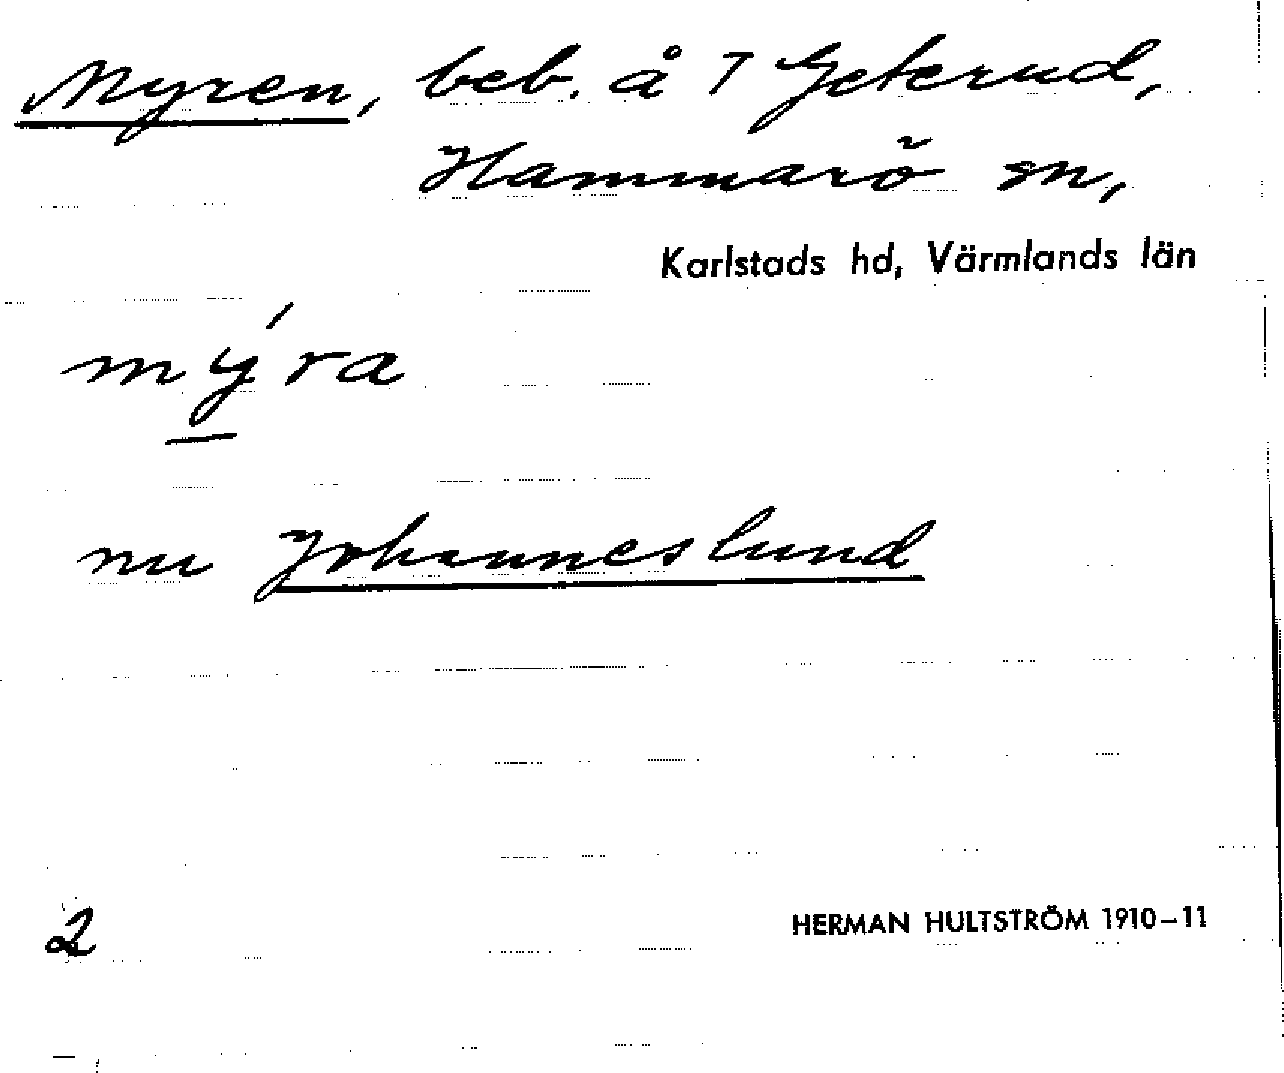 Myren, beb. å 7 Geterud,
Hammarö sn,
Karlstads hd, Värmlands län
mýra
nu Johanneslund
2
HERMAN HULTSTRÖM 1910–11